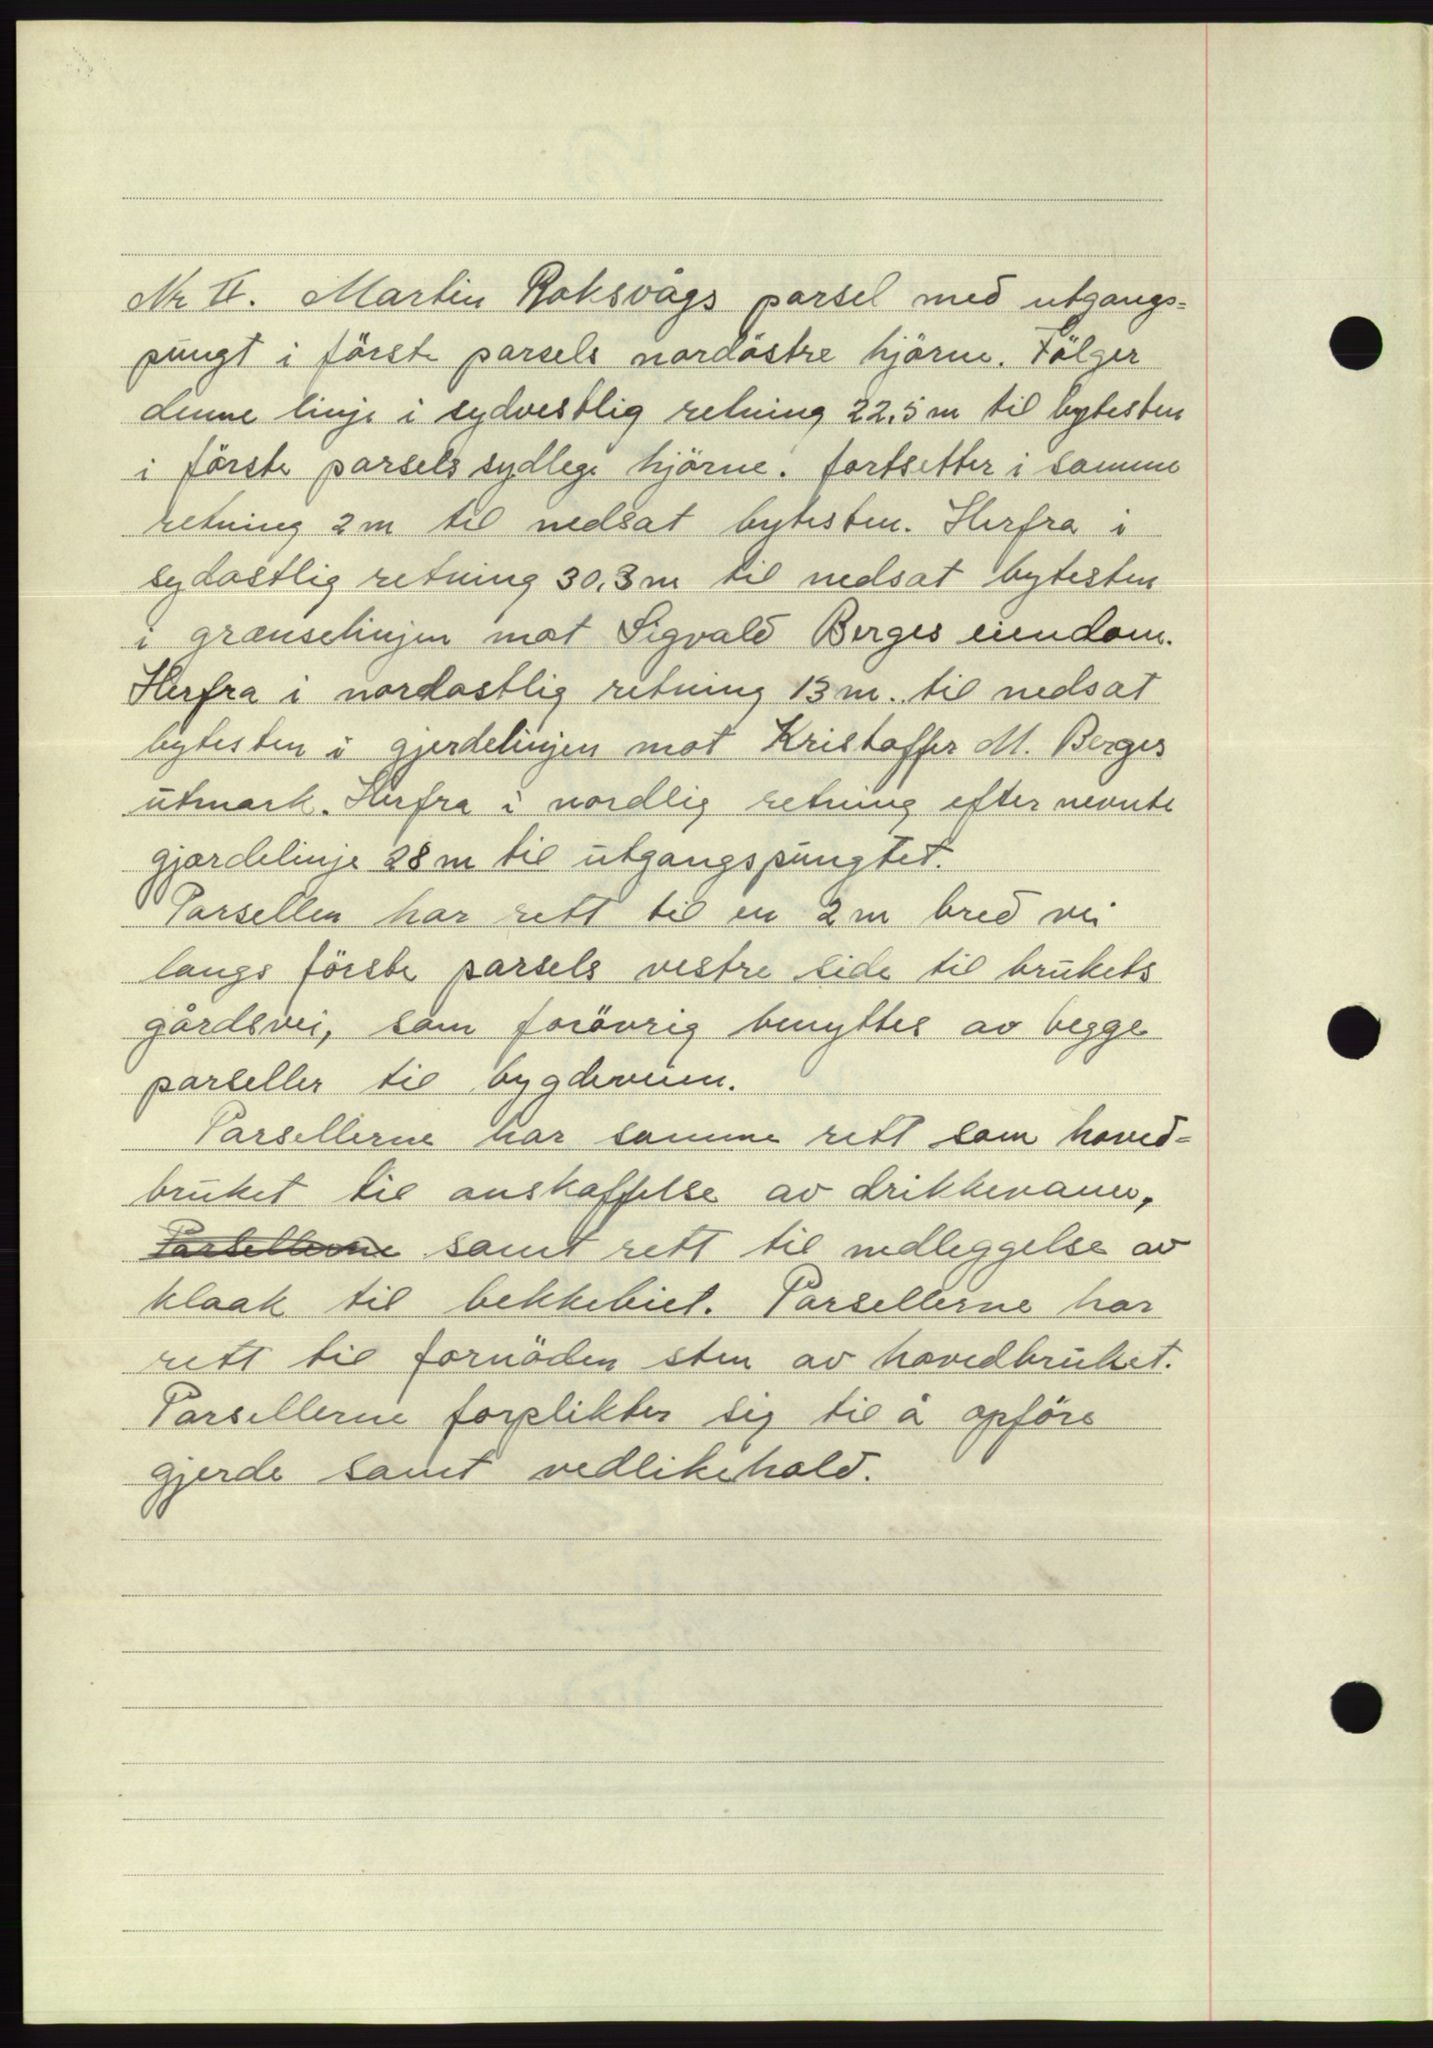 Nr II. Martin Roksvågs parsel med utgangs=
pungt i förste parsels nordöstre hjörne. Fölger
denne linje i sydvestlig retning 22,5 m til bytesten
i förste parsels sydlege hjörne. fortsetter i samme
retning 2 m til nedsat bytesten. Herfra i
sydostlig retning 30,3 m til nedsat bytesten
i grænselinjen mot Sigvald Berges eiendom.
Herfra i nordostlig retning 13 m. til nedsat
bytesten i gjerdelinjen mot Kristoffer M. Berges
utmark. Herfra i nordlig retning efter nevnte
gjærdelinje 28 m til utgangspungtet.
Parsellen har rett til en 2 m bred vei
langs förste parsels vestre side til brukets
gårdsvei, som forövrig benyttes av begge
parseller til bygdeveien.
Parsellerne har samme rett som hoved=
bruket til anskaffelse av drikkevann,
Parsellerne samt rett til nedleggelse av
kloak til bekkebiet. Parsellerne har
rett til fornöden sten av hovedbruket.
Parsellerne forplikter sig til å opföre
gjerde samt vedlikehold.